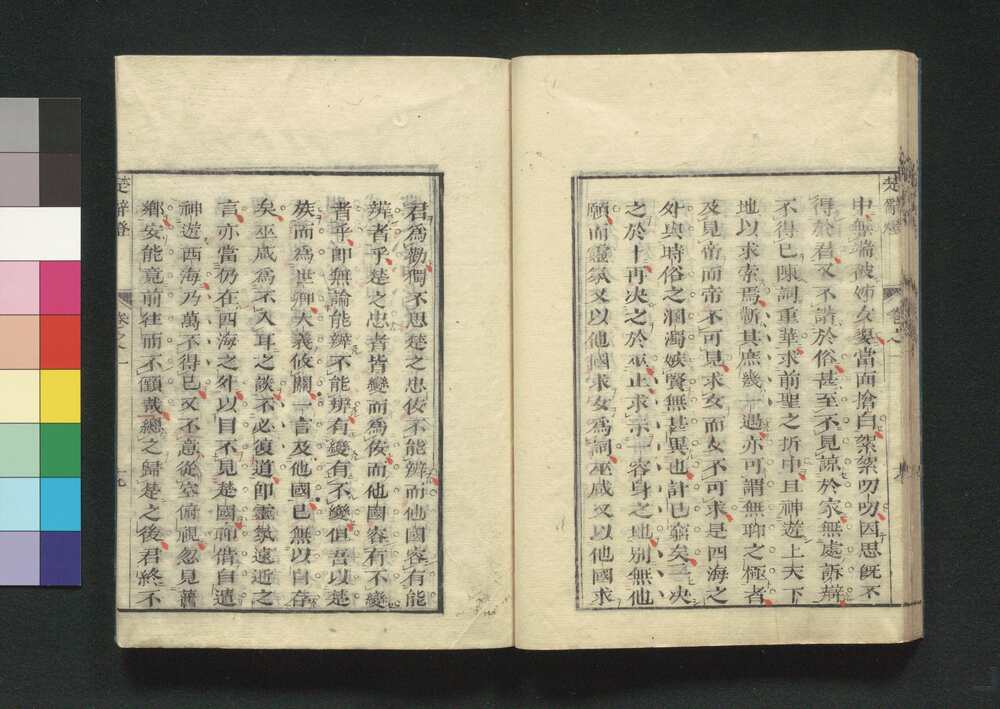 楚辭燈
中無端被姊女嬃當面搶白絮絮叨叨因思既不
得於君又不諧於俗甚至不見諒於家無處訴辯
不得已陳詞重華求前聖之折中且神遊上天下
地以求索焉斷其庶幾一遇亦可謂無聊之極者
及見帝而帝不可見求女而女不可求是四海之
外與時俗之溷濁嫉賢無甚異也計已窮矣一决
之於卜再决之於巫止求示一容身之地別無他
願而靈氛又以他國求女爲詞巫咸又以他國求
君爲勸獨不思楚之忠佞不能辨而他國容有能
辨者乎楚之忠者皆變而爲佞而他國容有不變
者乎即無論能辨不能辨有變有不變但吾以楚
族而爲世卿大義攸關一言及他國已無以自存
矣巫咸爲不入耳之談不必復道即靈氛遠逝之
言亦當仍在四海之外以目不見楚國而借自遣
神遊西海乃萬不得已又不意從空俯視忽見舊
鄉安能竟前往而不顧哉總之歸楚之後君終不
楚辭燈
卷之一
九